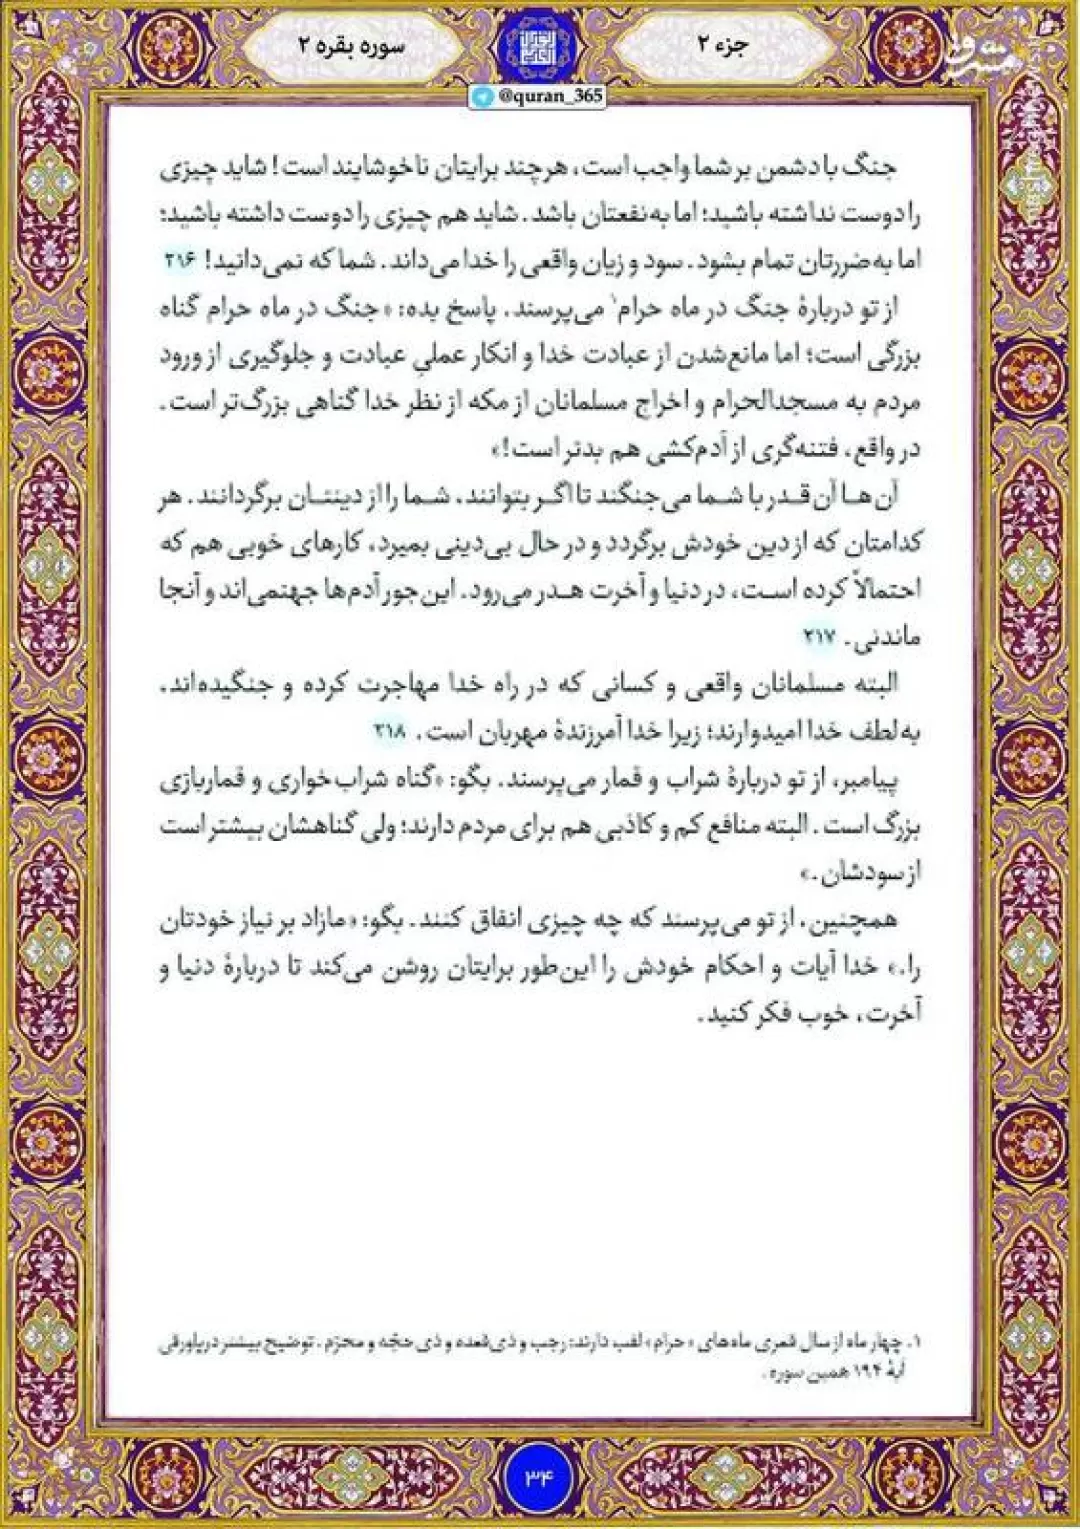 جزء ۲
سوره بقره ۲
@quran_365
جنگ با دشمن بر شما واجب است، هرچند برایتان ناخوشایند است! شاید چیزی
را دوست نداشته باشید؛ اما به‌نفعتان باشد. شاید هم چیزی را دوست داشته باشید؛
اما به‌ضررتان تمام بشود. سود و زیان واقعی را خدا می‌داند. شما که نمی‌دانید! ۲۱۶
از تو دربارهٔ جنگ در ماه حرام۱ می‌پرسند. پاسخ بده: «جنگ در ماه حرام گناه
بزرگی است؛ اما مانع‌شدن از عبادت خدا و انکار عملیِ عبادت و جلوگیری از ورود
مردم به مسجدالحرام و اخراج مسلمانان از مکه از نظر خدا گناهی بزرگ‌تر است.
در واقع، فتنه‌گری از آدم‌کشی هم بدتر است!»
آن‌ها آن‌قدر با شما می‌جنگند تا اگر بتوانند، شما را از دینتان برگردانند. هر
کدامتان که از دین خودش برگردد و در حال بی‌دینی بمیرد، کارهای خوبی هم که
احتمالاً کرده است، در دنیا و آخرت هدر می‌رود. این‌جور آدم‌ها جهنمی‌اند و آنجا
ماندنی. ۲۱۷
البته مسلمانان واقعی و کسانی که در راه خدا مهاجرت کرده و جنگیده‌اند،
به لطف خدا امیدوارند؛ زیرا خدا آمرزندهٔ مهربان است. ۲۱۸
پیامبر، از تو دربارهٔ شراب و قمار می‌پرسند. بگو: «گناه شراب‌خواری و قماربازی
بزرگ است. البته منافع کم و کاذبی هم برای مردم دارند؛ ولی گناهشان بیشتر است
از سودشان.»
همچنین، از تو می‌پرسند که چه چیزی انفاق کنند. بگو: «مازاد بر نیاز خودتان
را.» خدا آیات و احکام خودش را این‌طور برایتان روشن می‌کند تا دربارهٔ دنیا و
آخرت، خوب فکر کنید.
۱. چهار ماه از سال قمری ماه‌های «حرام» لقب دارند: رجب و ذی‌قعده و ذی‌حجّه و محرّم. توضیح بیشتر در پاورقی
آیهٔ ۱۹۴ همین سوره.
۳۴